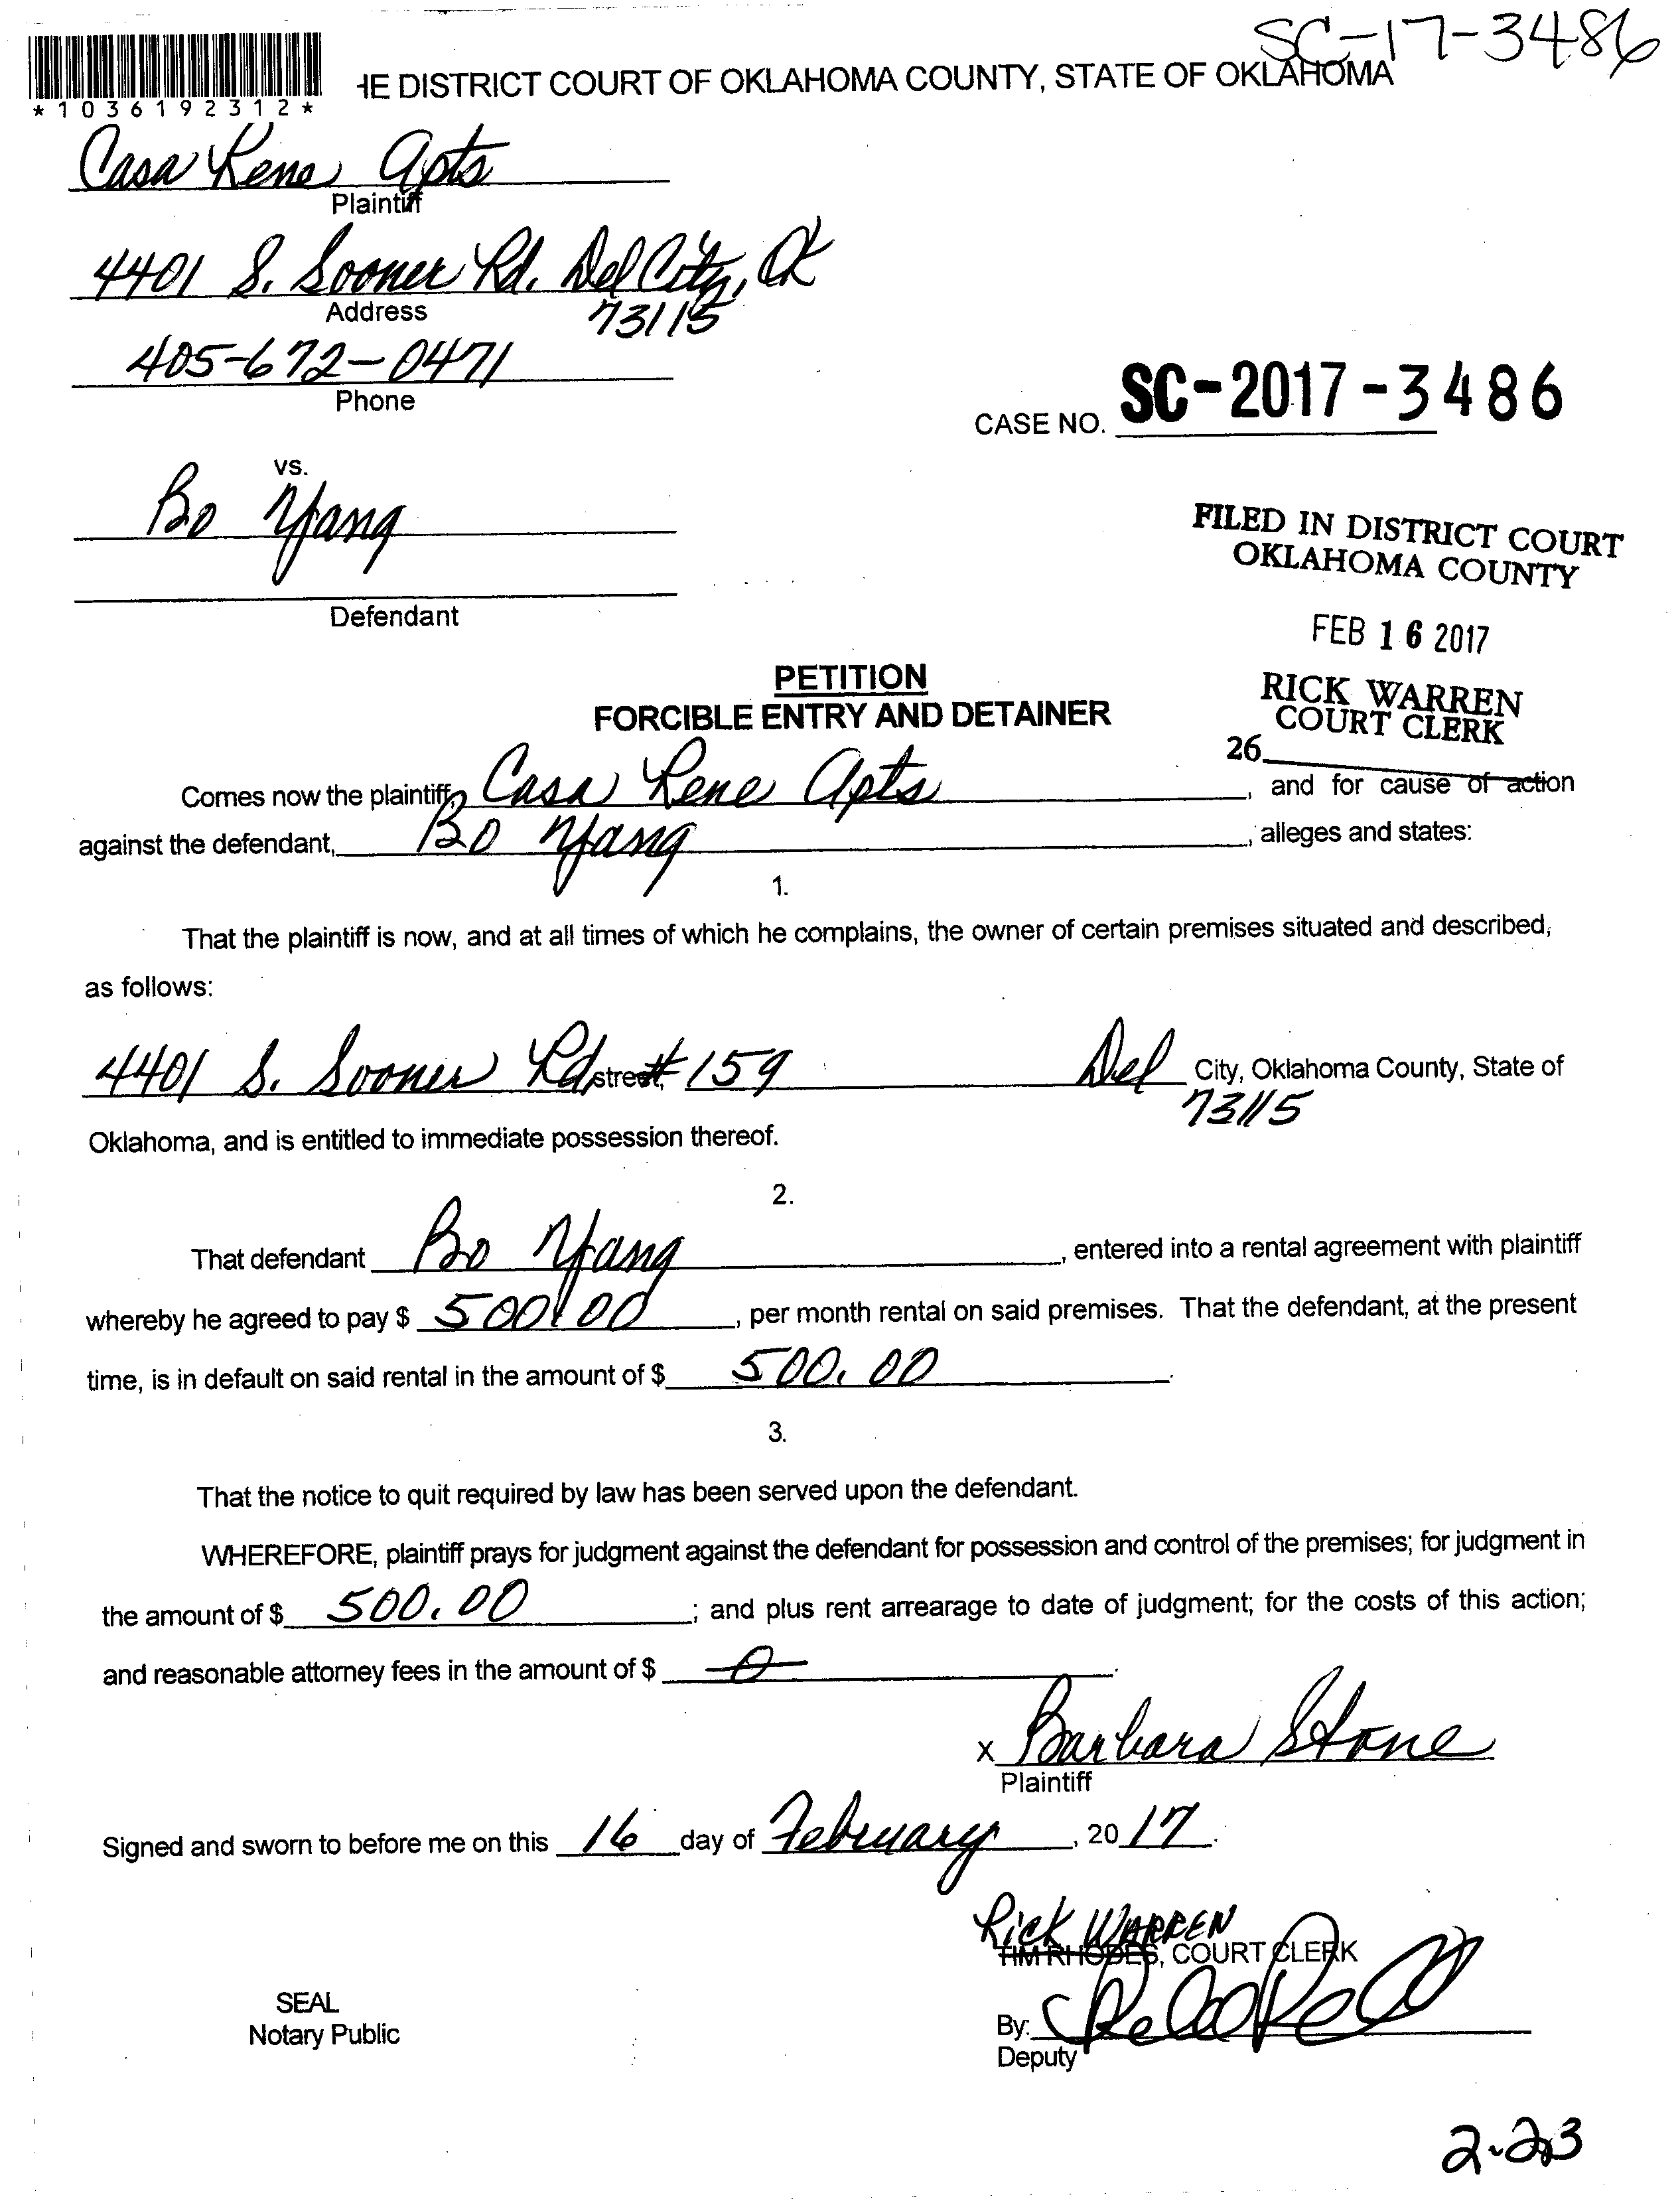 SC-17-3486
*1036192312*
HE DISTRICT COURT OF OKLAHOMA COUNTY, STATE OF OKLAHOMA
Casa Rene Apts
Plaintiff
4401 S. Sooner Rd. Del City, OK
Address
73115
405-672-0471
Phone
CASE NO. SC-2017-3486
vs.
Bo Yang
Defendant
FILED IN DISTRICT COURT
OKLAHOMA COUNTY
FEB 16 2017
RICK WARREN
COURT CLERK
26
PETITION
FORCIBLE ENTRY AND DETAINER
Comes now the plaintiff, Casa Rene Apts, and for cause of action
against the defendant, Bo Yang, alleges and states:
1.
That the plaintiff is now, and at all times of which he complains, the owner of certain premises situated and described,
as follows:
4401 S. Sooner Rd street, #159 Del City, Oklahoma County, State of
73115
Oklahoma, and is entitled to immediate possession thereof.
2.
That defendant Bo Yang, entered into a rental agreement with plaintiff
whereby he agreed to pay $ 500.00, per month rental on said premises. That the defendant, at the present
time, is in default on said rental in the amount of $ 500.00.
3.
That the notice to quit required by law has been served upon the defendant.
WHEREFORE, plaintiff prays for judgment against the defendant for possession and control of the premises; for judgment in
the amount of $ 500.00; and plus rent arrearage to date of judgment; for the costs of this action;
and reasonable attorney fees in the amount of $ 0.
x Barbara Stone
Plaintiff
Signed and sworn to before me on this 16 day of February, 2017.
Rick WARREN
TIM RHODES, COURT CLERK
SEAL
Notary Public
By:
Deputy
2-23